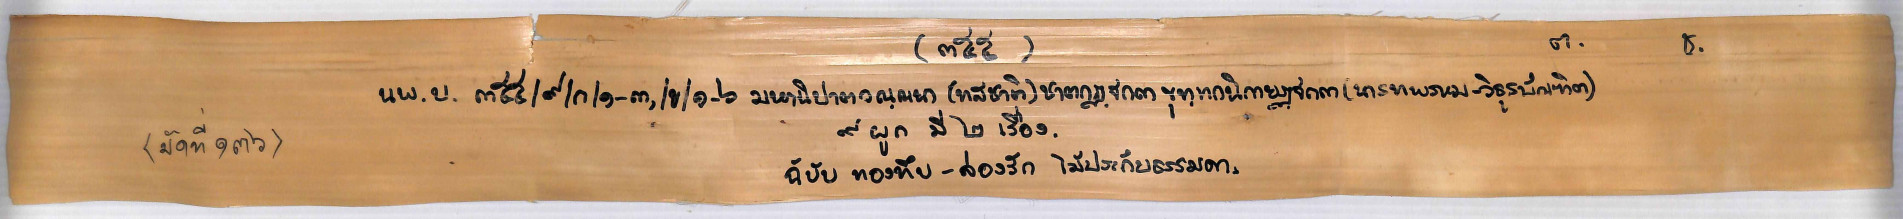 (๓๕๕) ต. ธ.
นพ.บ. ๓๕๕/๙/ก/๑-๓,/ข/๑-๖ มหานิปาตวณฺณนา (ทสชาติ) ชาตกฏฺฐกถา ขุทฺทกนิกายฏฺฐกถา (นารทพรหม-วิธูรบัณฑิต)
๙ ผูก มี ๒ เรื่อง.
(มัดที่ ๑๓๖)
ฉบับ ทองทึบ - ล่องรัก ไม้ประกับธรรมดา.